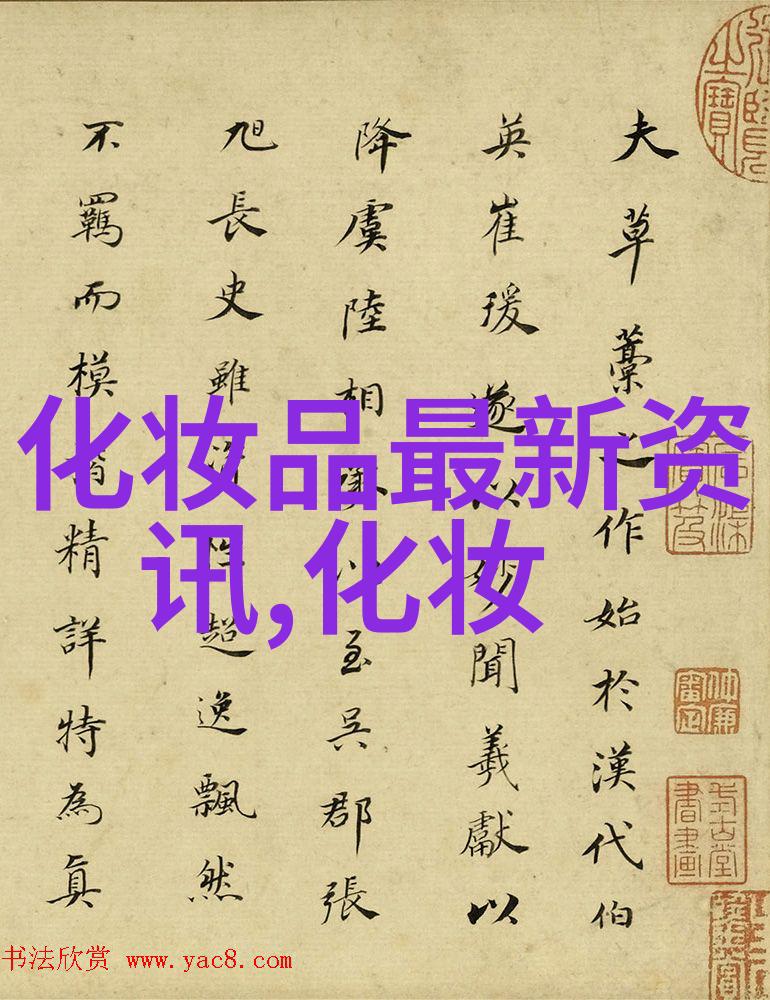 夫草藁之作始於漢代伯
英崔瑗遂以妙聞羲獻以
降虞陸相承以至吳郡張
旭長史雖性超逸飄然
不羈而模楷精詳特為真
化妆品最新资
讯,化妆
书法欣赏 www.yac8.com